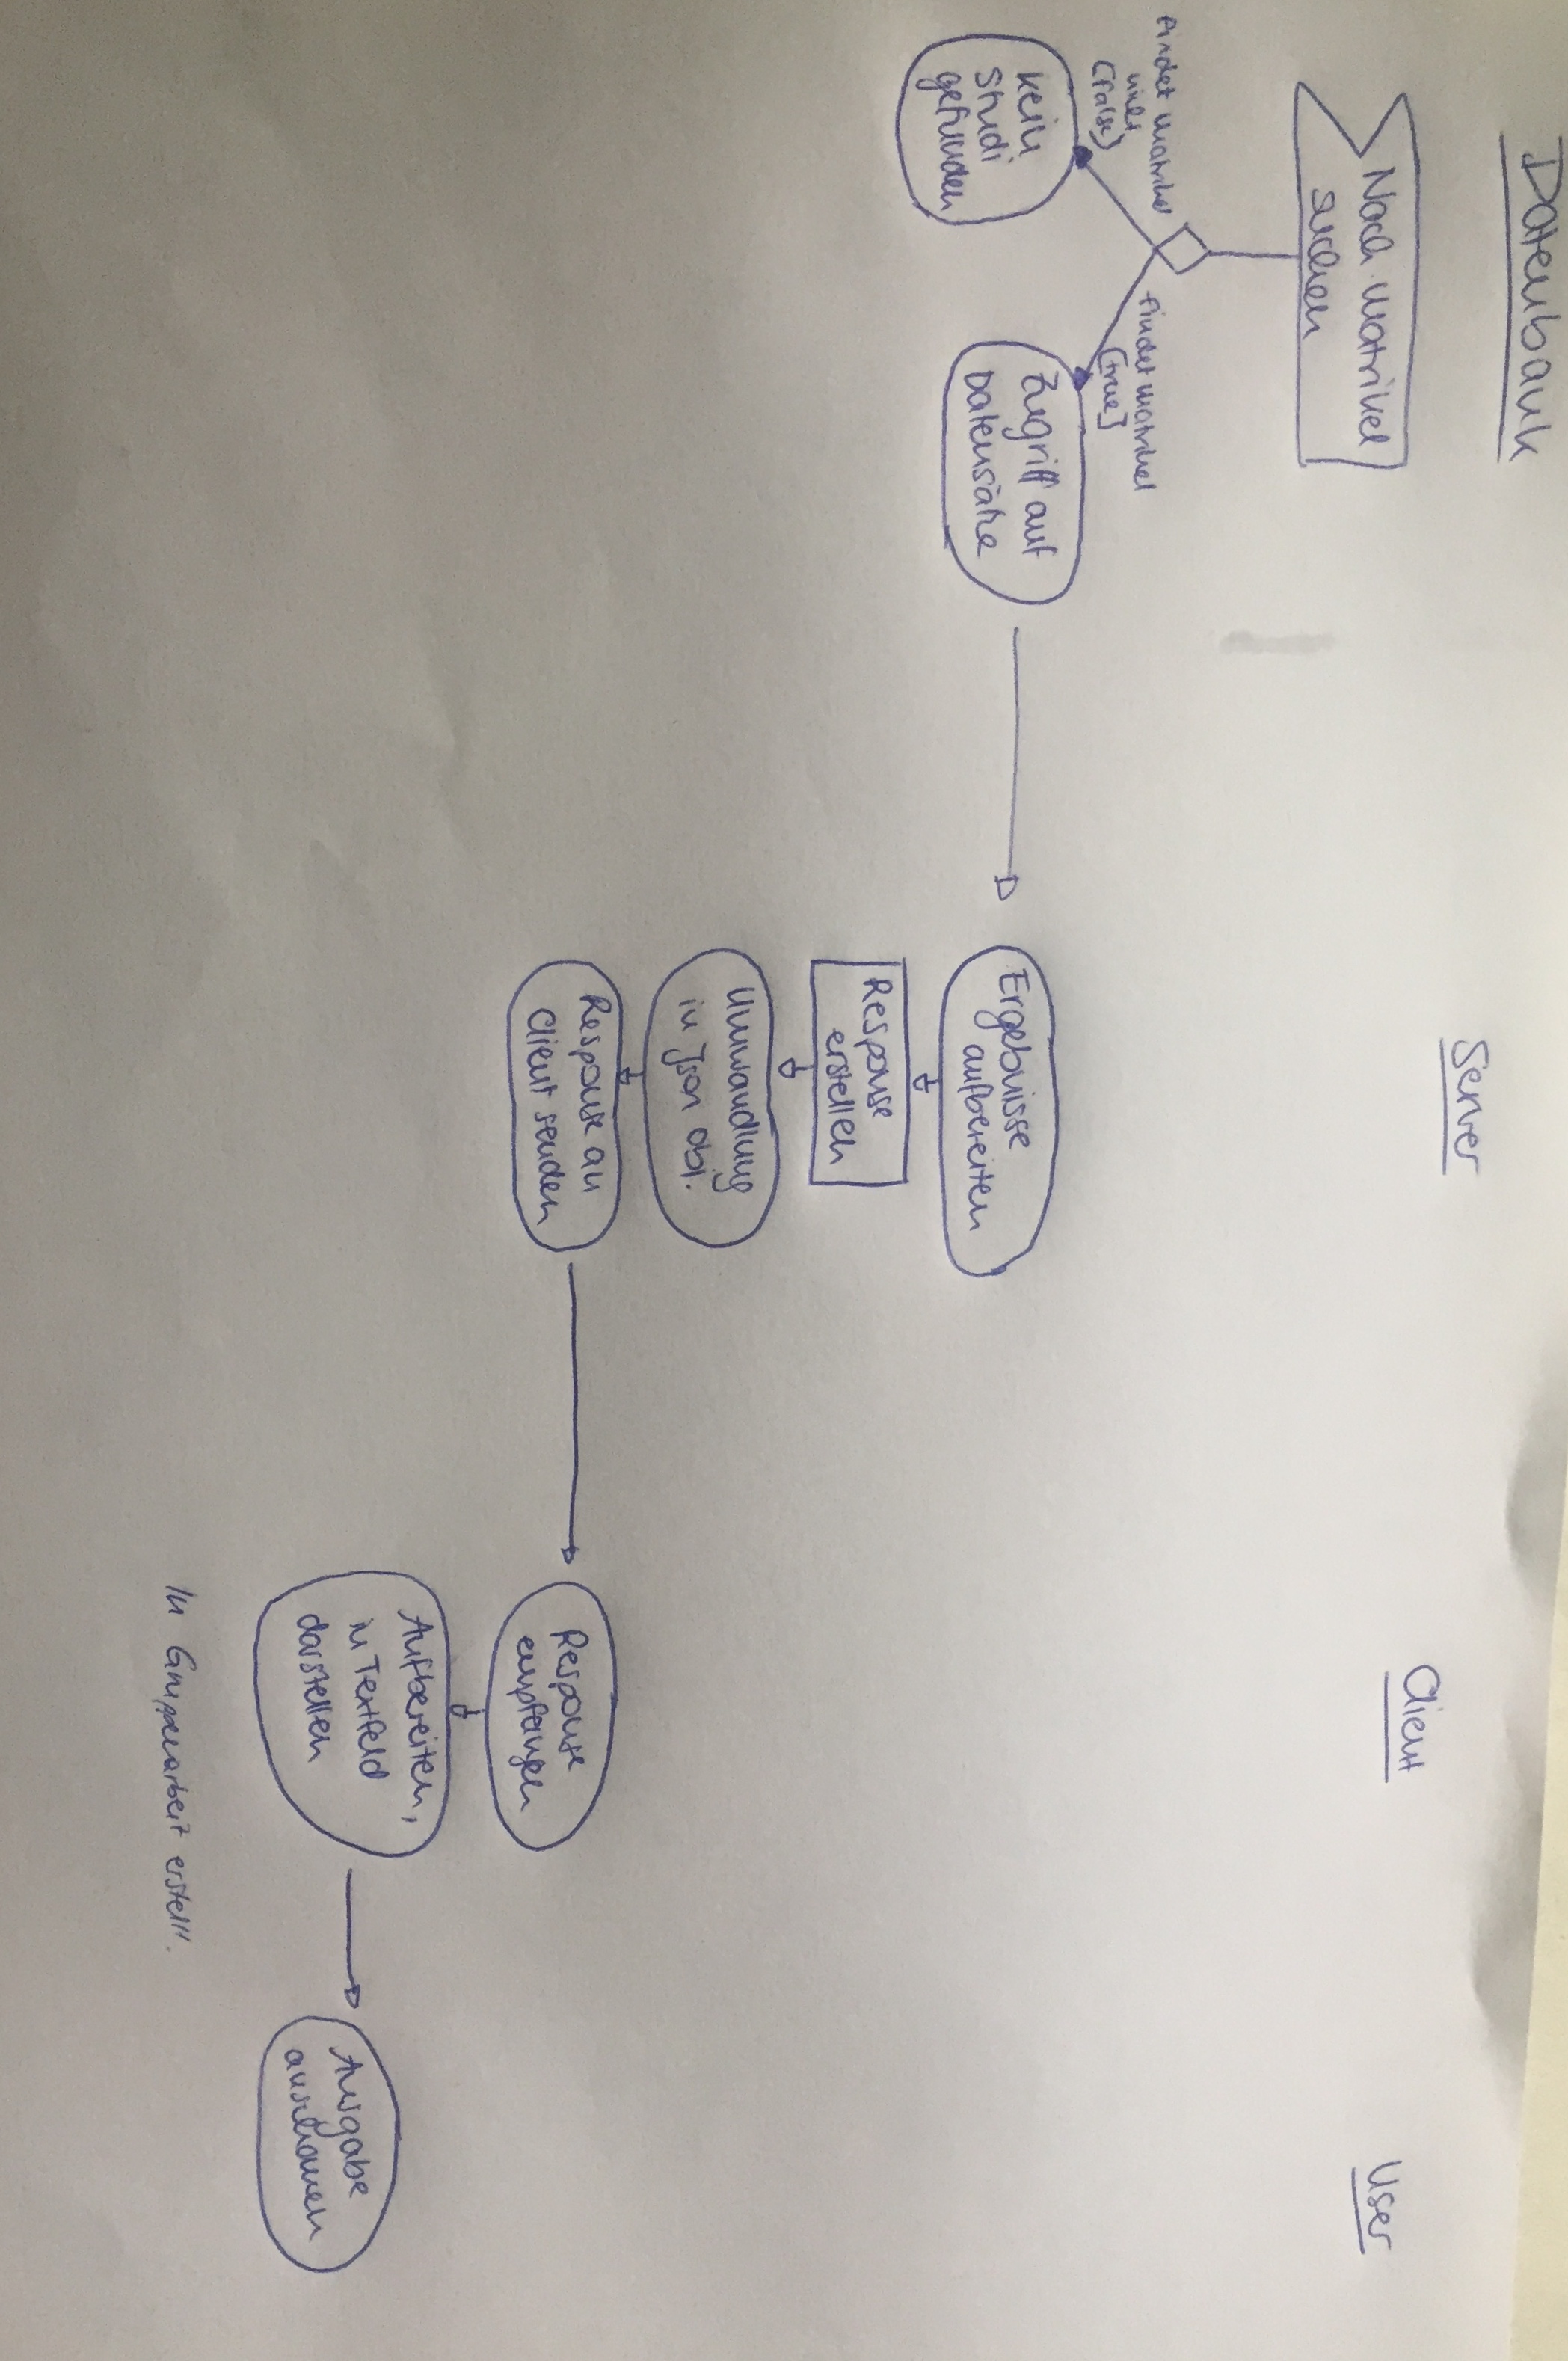 Datenbank
Server
Client
User
Nach matrikel
suchen
findet matrikel
(false)
findet matrikel
[true]
kein
Studi
gefunden
Zugriff auf
Datensätze
Ergebnisse
aufbereiten
Response
erstellen
Umwandlung
in Json obj.
Response an
Client senden
Response
empfangen
Aufbereiten,
in Textfeld
darstellen
Ausgabe
anschauen
In Gruppenarbeit erstellt.